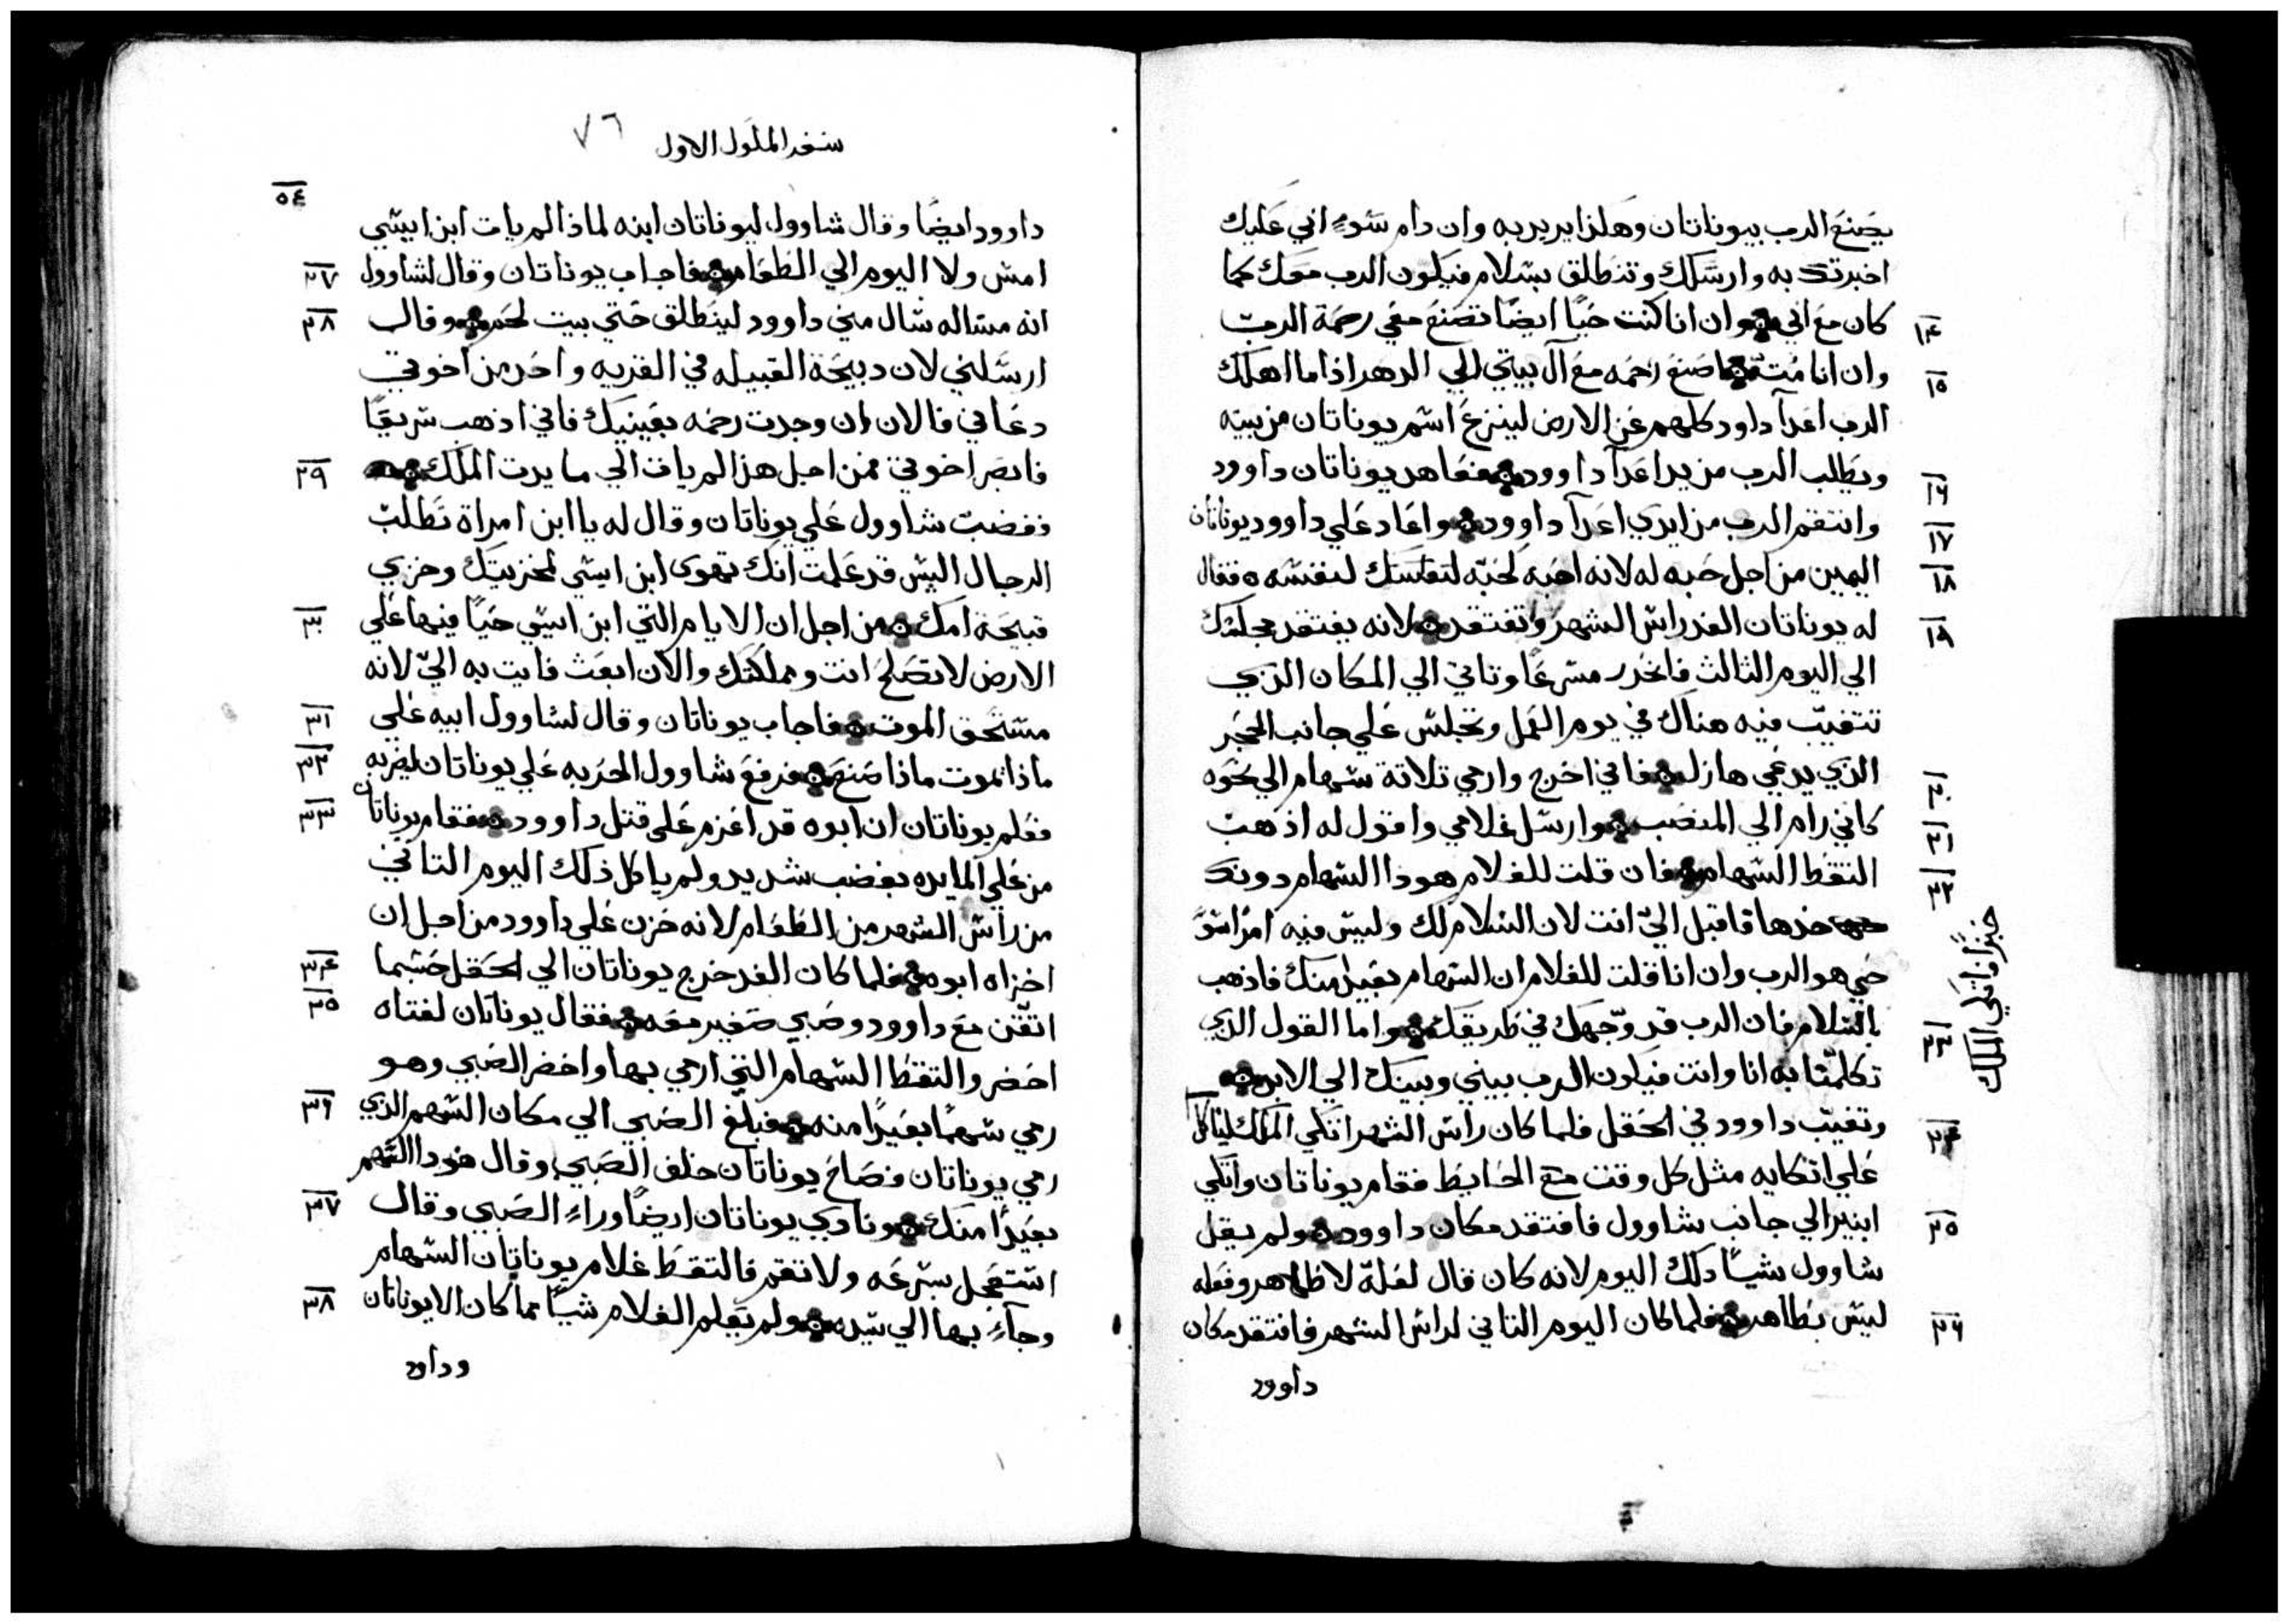 يصنع الرب بيوناتان وهكذا يريد به وان دام سوءٍ اني عليك
اخبرتك به وارسلك وتنطلق بسلام فيكون الرب معك كما
١٤ كان مع ابي وان انا كنت حيًا ايضًا تصنع معي رحمة الرب
١٥ وان انا مُتّ فاصنع رحمه مع آل بيتي الي الدهر اذا ما اهلك
الرب اعدآ داود كلهم عن الارض لينزع اسم يوناتان من بيته
١٦ ويطلب الرب من يد اعدآ داوود فعاهد يوناتان داوود
١٧ وانتقم الرب من ايدي اعدآ داوود واعاد علي داوود يوناتان
١٨ اليمين من اجل حبه له لانه احبه لحبّه لنفسه فقال
١٩ له يوناتان الغد راس الشهر وتفتقد لانه يفتقد مجلسك
الي اليوم الثالث فانحدر مسرعًا وتاتي الي المكان الذي
تتغيب فيه هناك في يوم العمل وتجلس علي جانب الحجر
٢٠ الذي يدعي هازل فاني اخرج وارمي تلاتة سهام الي نحوه
٢١ كاني رام الي المنصب وارسل غلامي واقول له اذهب
٢٢ التقط السهام فان قلت للغلام هودا السهام دونك
خدها فاقبل اليّ انت لان السلام لك وليس فيه امرًا سوّ
حي هو الرب وان انا قلت للغلام ان السهام بعيدًا منك فاذهب
٢٣ بالسلام فان الرب قد وجّهك في طريقك واما القول الذي
تكلمنا به انا وانت فيكون الرب بيني وبينك الي الابد
٢٤ وتغيب داوود في الحقل فلما كان راس الشهر اتكي الملك لياكل
خبزًا واتكي الملك
علي اتكايه مثل كل وقت مع الحايط فقام يوناتان واتكي
٢٥ ابنير الي جانب شاوول فافتقد مكان داوود ولم يقل
شاوول شيئًا دلك اليوم لانه كان قال لعلة لا ظاهر وفعله
٢٦ ليس بطاهر فلما كان اليوم التاني لراس الشهر فافتقد مكان
داوود
سفر الملوك الاول ٧٦
٥٤
داوود ايضًا وقال شاوول ليوناتان ابنه لماذا لم يات ابن ايسّي
٢٧ امس ولا اليوم الي الطعام فاجاب يوناتان وقال لشاوول
٢٨ انه مساله سال مني داوود لينطلق حتي بيت لحم وقال
ارسلني لان دبيحة القبيله في القريه واحد من اخوتي
دعاني فالان ان وجدت رحمه بعينيك فاني اذهب سريعًا
٢٩ فابصر اخوتي فمن اجل هذا لم يات الي مايدت الملك
فغضب شاوول علي يوناتان وقال له يا ابن امراة تطلب
الرجال اليس قد علمت انك تهوى ابن ايسي لخزيتك وخزي
٣٠ قبيحة امك من اجل ان الايام التي ابن ايسّي حيًا فيها علي
الارض لا تصلح انت ومملكتك والان ابعث فايت به اليّ لانه
٣١ مستحق الموت فاجاب يوناتان وقال لشاوول ابيه علي
٣٢ ماذا يموت ماذا صنع فرفع شاوول الحربه علي يوناتان ليضربه
٣٣ فعلم يوناتان ان ابوه قد اعزم علي قتل داوود فقام يوناتان
من علي المايده بغضب شديد ولم ياكل ذلك اليوم التاني
من راس الشهر من الطعام لانه حزن علي داوود من اجل ان
٣٤ اخزاه ابوه فلما كان الغد خرج يوناتان الي الحقل حسبما
٣٥ اتقن مع داوود وصبي صغير معه فقال يوناتان لفتاه
احضر والتقط السهام التي ارمي بها واحضر الصبي وهو
٣٦ رمي سهمًا بعيدًا منه فبلغ الصبي الي مكان السهم الذي
رمي يوناتان فصاح يوناتان خلف الصبي وقال هودا السهم
٣٧ بعيدًا منك ونادي يوناتان ايضًا وراءِ الصبي وقال
استعجل بسرعه ولا تقم فالتقط غلام يوناتان السهام
٣٨ وجآءِ بها الي سيده ولم يعلم الغلام شيًا مما كان الا يوناتان
وداود